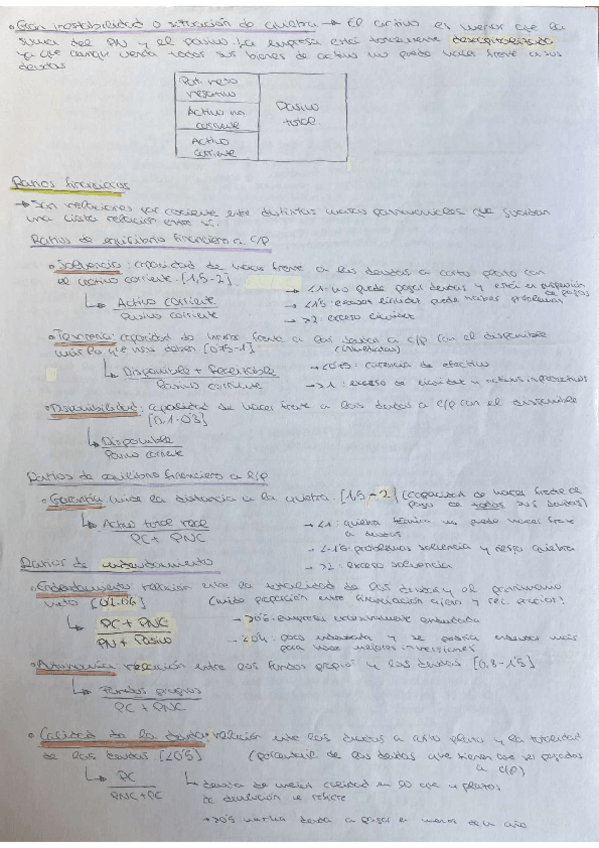 Gran inestabilidad o situación de quiebra → El activo es menor que la
suma del PN y el pasivo. La empresa está totalmente descapitalizada
ya que aunque venda todos sus bienes de activo no puede hacer frente a sus
deudas
Pat. neto
negativo
Activo no
corriente
Activo
corriente
Pasivo
total
Ratios financieros
→ Son relaciones por cociente entre distintas masas patrimoniales que guardan
una cierta relación entre sí.
Ratios de equilibrio financiero a c/p
Solvencia: capacidad de hacer frente a las deudas a corto plazo con
el activo corriente. [1,5-2]
Activo corriente
Pasivo corriente
→ <1: no puede pagar deudas y está en suspensión de pagos
→ <1'5: escasa liquidez puede haber problemas
→ >2: exceso liquidez
Tesorería: capacidad de hacer frente a las deudas a c/p con el disponible
más lo que nos deben. [0'75-1] (inmediatas)
Disponible + Realizable
Pasivo corriente
→ <0'75: carencia de efectivo
→ >1: exceso de liquidez y activos improductivos
Disponibilidad: capacidad de hacer frente a las deudas a c/p con el disponible
[0,1-0'3]
Disponible
Pasivo corriente
Ratios de equilibrio financiero a l/p
Garantía: mide la distancia a la quiebra. [1,5-2] (capacidad de hacer frente al
pago de todas sus deudas)
Activo total real
PC + PNC
→ <1: quiebra técnica no puede hacer frente
a deudas
→ <1'5: problemas solvencia y riesgo quiebra
→ >2: exceso solvencia
Ratios de endeudamiento
Endeudamiento: relación entre la totalidad de las deudas y el patrimonio
neto (mide proporción entre financiación ajena y rec. propios)
PC + PNC
PN + Pasivo
→ >0'6: empresa excesivamente endeudada
<0'4: poco endeudada y se podría endeudar más
para hacer mejores inversiones
Autonomía: relación entre los fondos propios y las deudas [0,8-1'5]
Fondos propios
PC + PNC
Calidad de la deuda: relación entre las deudas a corto plazo y la totalidad
de las deudas [<0'5] (porcentaje de las deudas que tienen que ser pagadas
a c/p)
PC
PNC + PC
deuda de mejor calidad en lo que a plazos
de devolución se refiere
→ >0'5 mucha deuda a pagar en menos de un año